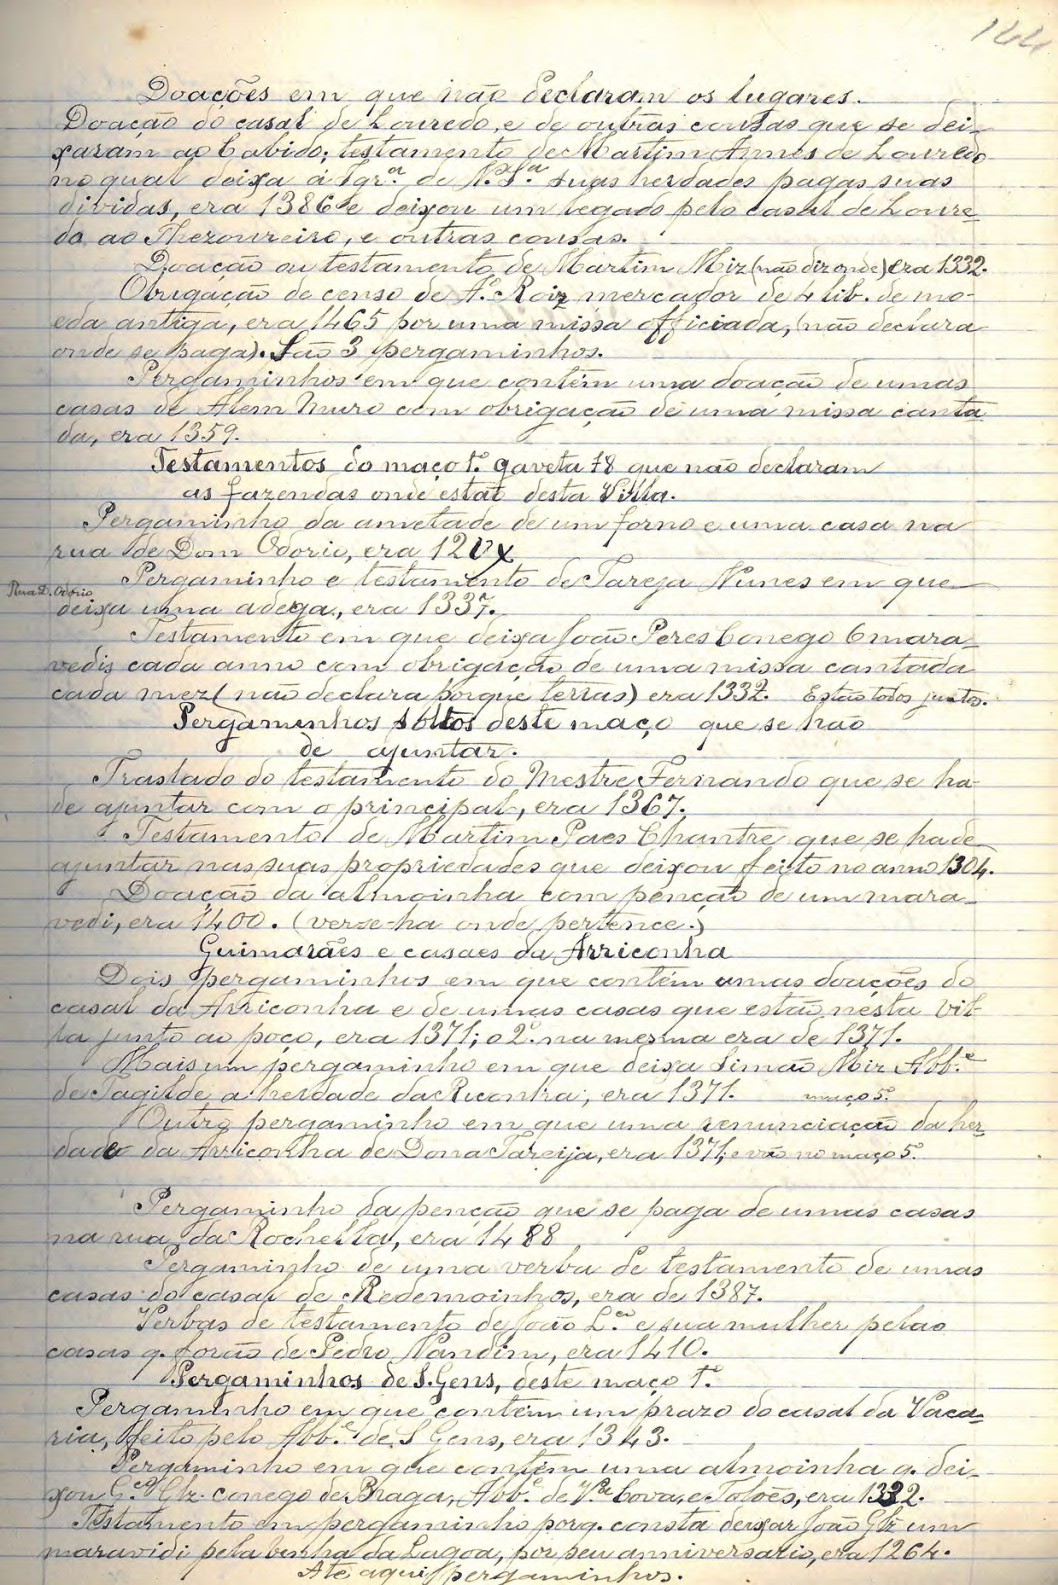 144
Doações em que não declaram os lugares.
Doação do casal de Louredo, e de outras cousas que se dei-
xaram ao Cabido; testamento de Martim Annes de Louredo
no qual deixa á Igr.ª de N.ª S.ª suas herdades pagas suas
dividas, era 1386 e deixou um legado pelo casal de Loure-
do ao Thezoureiro, e outras cousas.
Doação ou testamento de Martim Miz (não diz onde) era 1332.
Obrigação de censo de A.º Roiz mercador de 4 lib. de mo-
eda antiga, era 1465 por uma missa officiada, (não declara
onde se paga). São 3 pergaminhos.
Pergaminhos em que contém uma doação de umas
casas de Alem Muro com obrigação de uma missa canta-
da, era 1359.
Testamentos do maço 1.º gaveta 18 que não declaram
as fazendas onde estão desta Villa.
Pergaminho da ametade de um forno e uma casa na
rua de Dom Odorio, era
Pergaminho e testamento de Tareja Nunes em que
Rua D. Odorio
deixa uma adega, era 1337.
Testamento em que deixa João Peres Conego 6 mara-
vedis cada anno com obrigação de uma missa cantada
cada mez (não declara porque terras) era 1332. Estão todos juntos.
Pergaminhos soltos deste maço que se hão
de ajuntar.
Traslado do testamento do Mestre Fernando que se ha-
de ajuntar com o principal, era 1367.
Testamento de Martim Paes Chantre que se hade
ajuntar nas suas propriedades que deixou feito no anno 1304.
Doação da almoinha com penção de um mara-
vedi, era 1400. (verse-ha onde pertence.)
Guimarães e casaes da Arriconha
Dois pergaminhos em que contém umas doações do
casal da Arriconha e de umas casas que estão nesta Vil-
la junto ao poço, era 1371; o 2.º na mesma era de 1371.
Mais um pergaminho em que deixa Simão Miz Abb.e
de Tagilde a herdade da Riconha, era 1371. maço 5.º
Outro pergaminho em que uma renunciação da her-
dade da Arriconha de Dona Tareija, era 1371, e vão no maço 5.º
Pergaminho da penção que se paga de umas casas
na rua da Rochella, era 1488
Pergaminho de uma verba de testamento de umas
casas do casal de Redemoinhos, era de 1387.
Verbas de testamento de João L.ço e sua mulher pelas
casas q. forão de Pedro Nandim, era 1410.
Pergaminhos de S. Gens, deste maço 1.º
Pergaminho em que contém um prazo do casal da Vaca-
ria, feito pelo Abb.e de S Gens, era 1343.
Pergaminho em que contém uma almoinha q. dei-
xou G.ço Glz. conego de Braga, Abb.e de V.ª Cova, e Tolões, era
Testamento em pergaminho porq. consta deixar João Glz um
maravidi pela vinha da Lagoa, por seu anniversario, era 1264.
Até aqui pergaminhos.